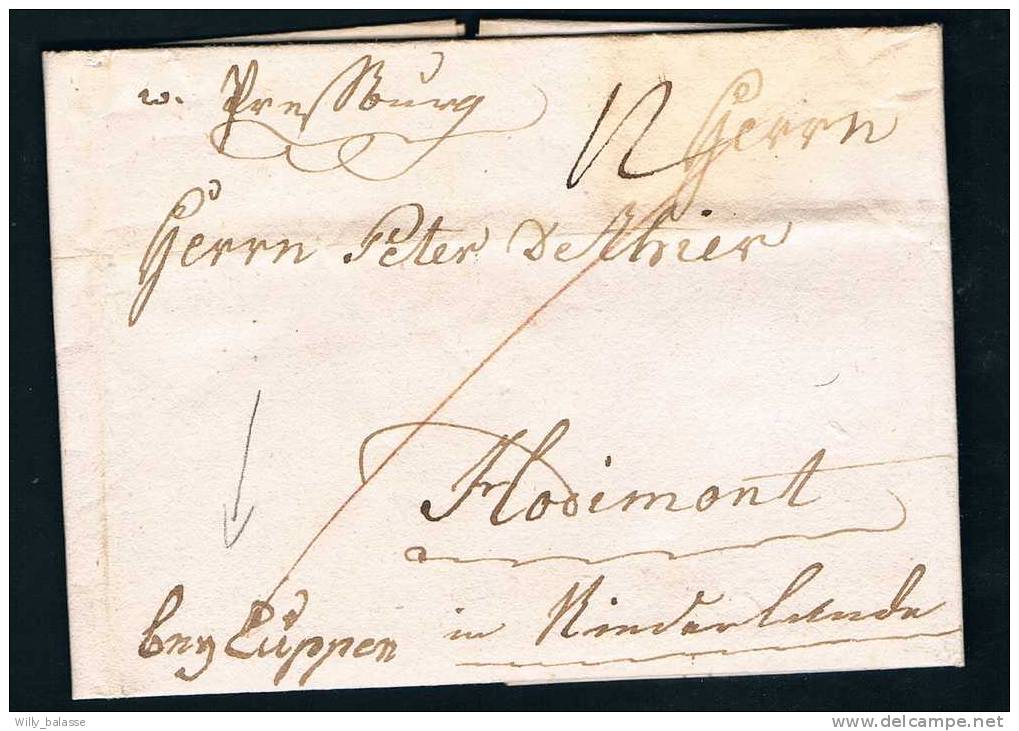 v. Pressburg
12 Herrn
Herrn Peter Dethier
Hodimont
bey Euppen in Niederlande
Willy_balasse
delcampe.net